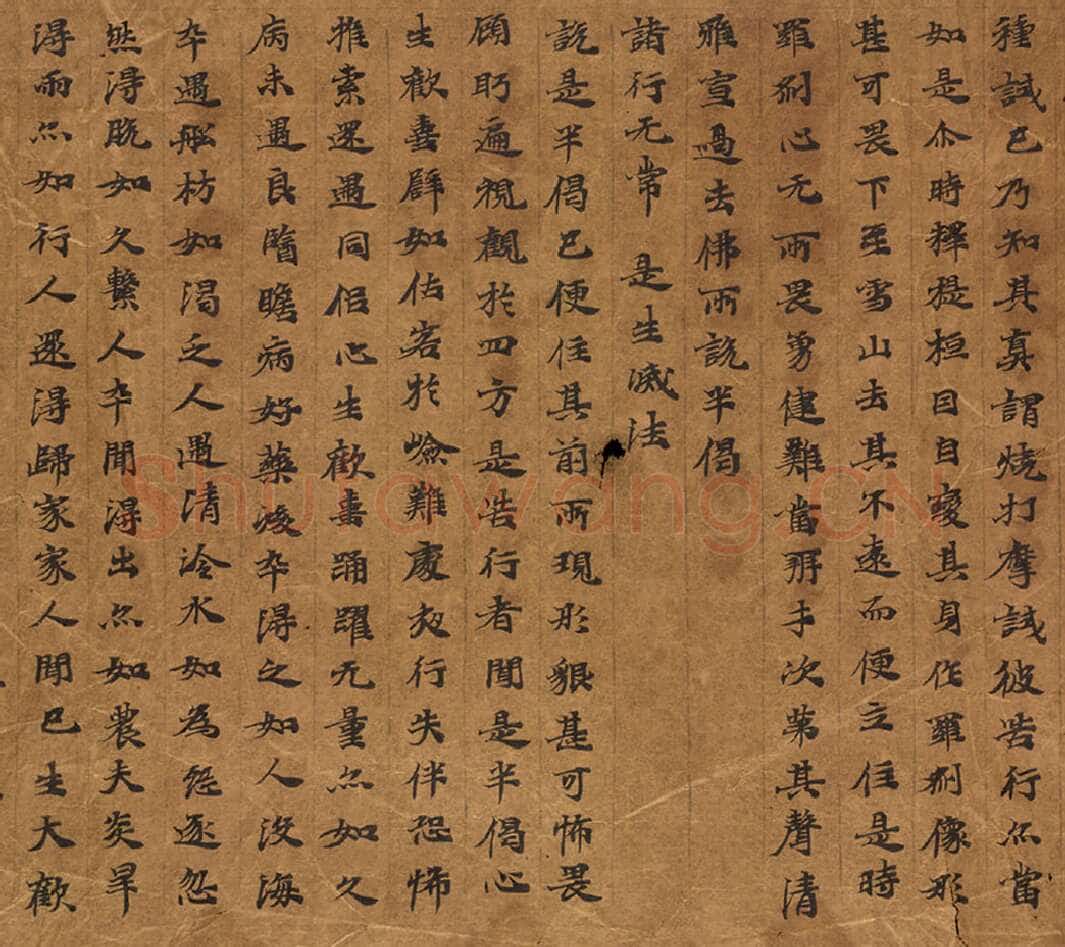 種試已乃知其真謂燒打摩試彼苦行亦當
如是尒時釋提桓因自變其身作羅刹像形
甚可畏下至雪山去其不遠而便立住是時
羅刹心无所畏勇健難當辯才次第其聲清
雅宣過去佛所說半偈
諸行无常 是生滅法
說是半偈已便住其前所現形貌甚可怖畏
顧眄遍視觀於四方是苦行者聞是半偈心
生歡喜辟如估客於嶮難處夜行失伴恐怖
推索還遇同侶心生歡喜踊躍无量亦如久
病未遇良醫瞻病好藥後卒得之如人沒海
卒遇船枋如渴乏人遇清冷水如為怨逐忽
然得脫如久繫人卒聞得出亦如農夫炎旱
得雨亦如行人還得歸家家人聞已生大歡
Shufawang.CN